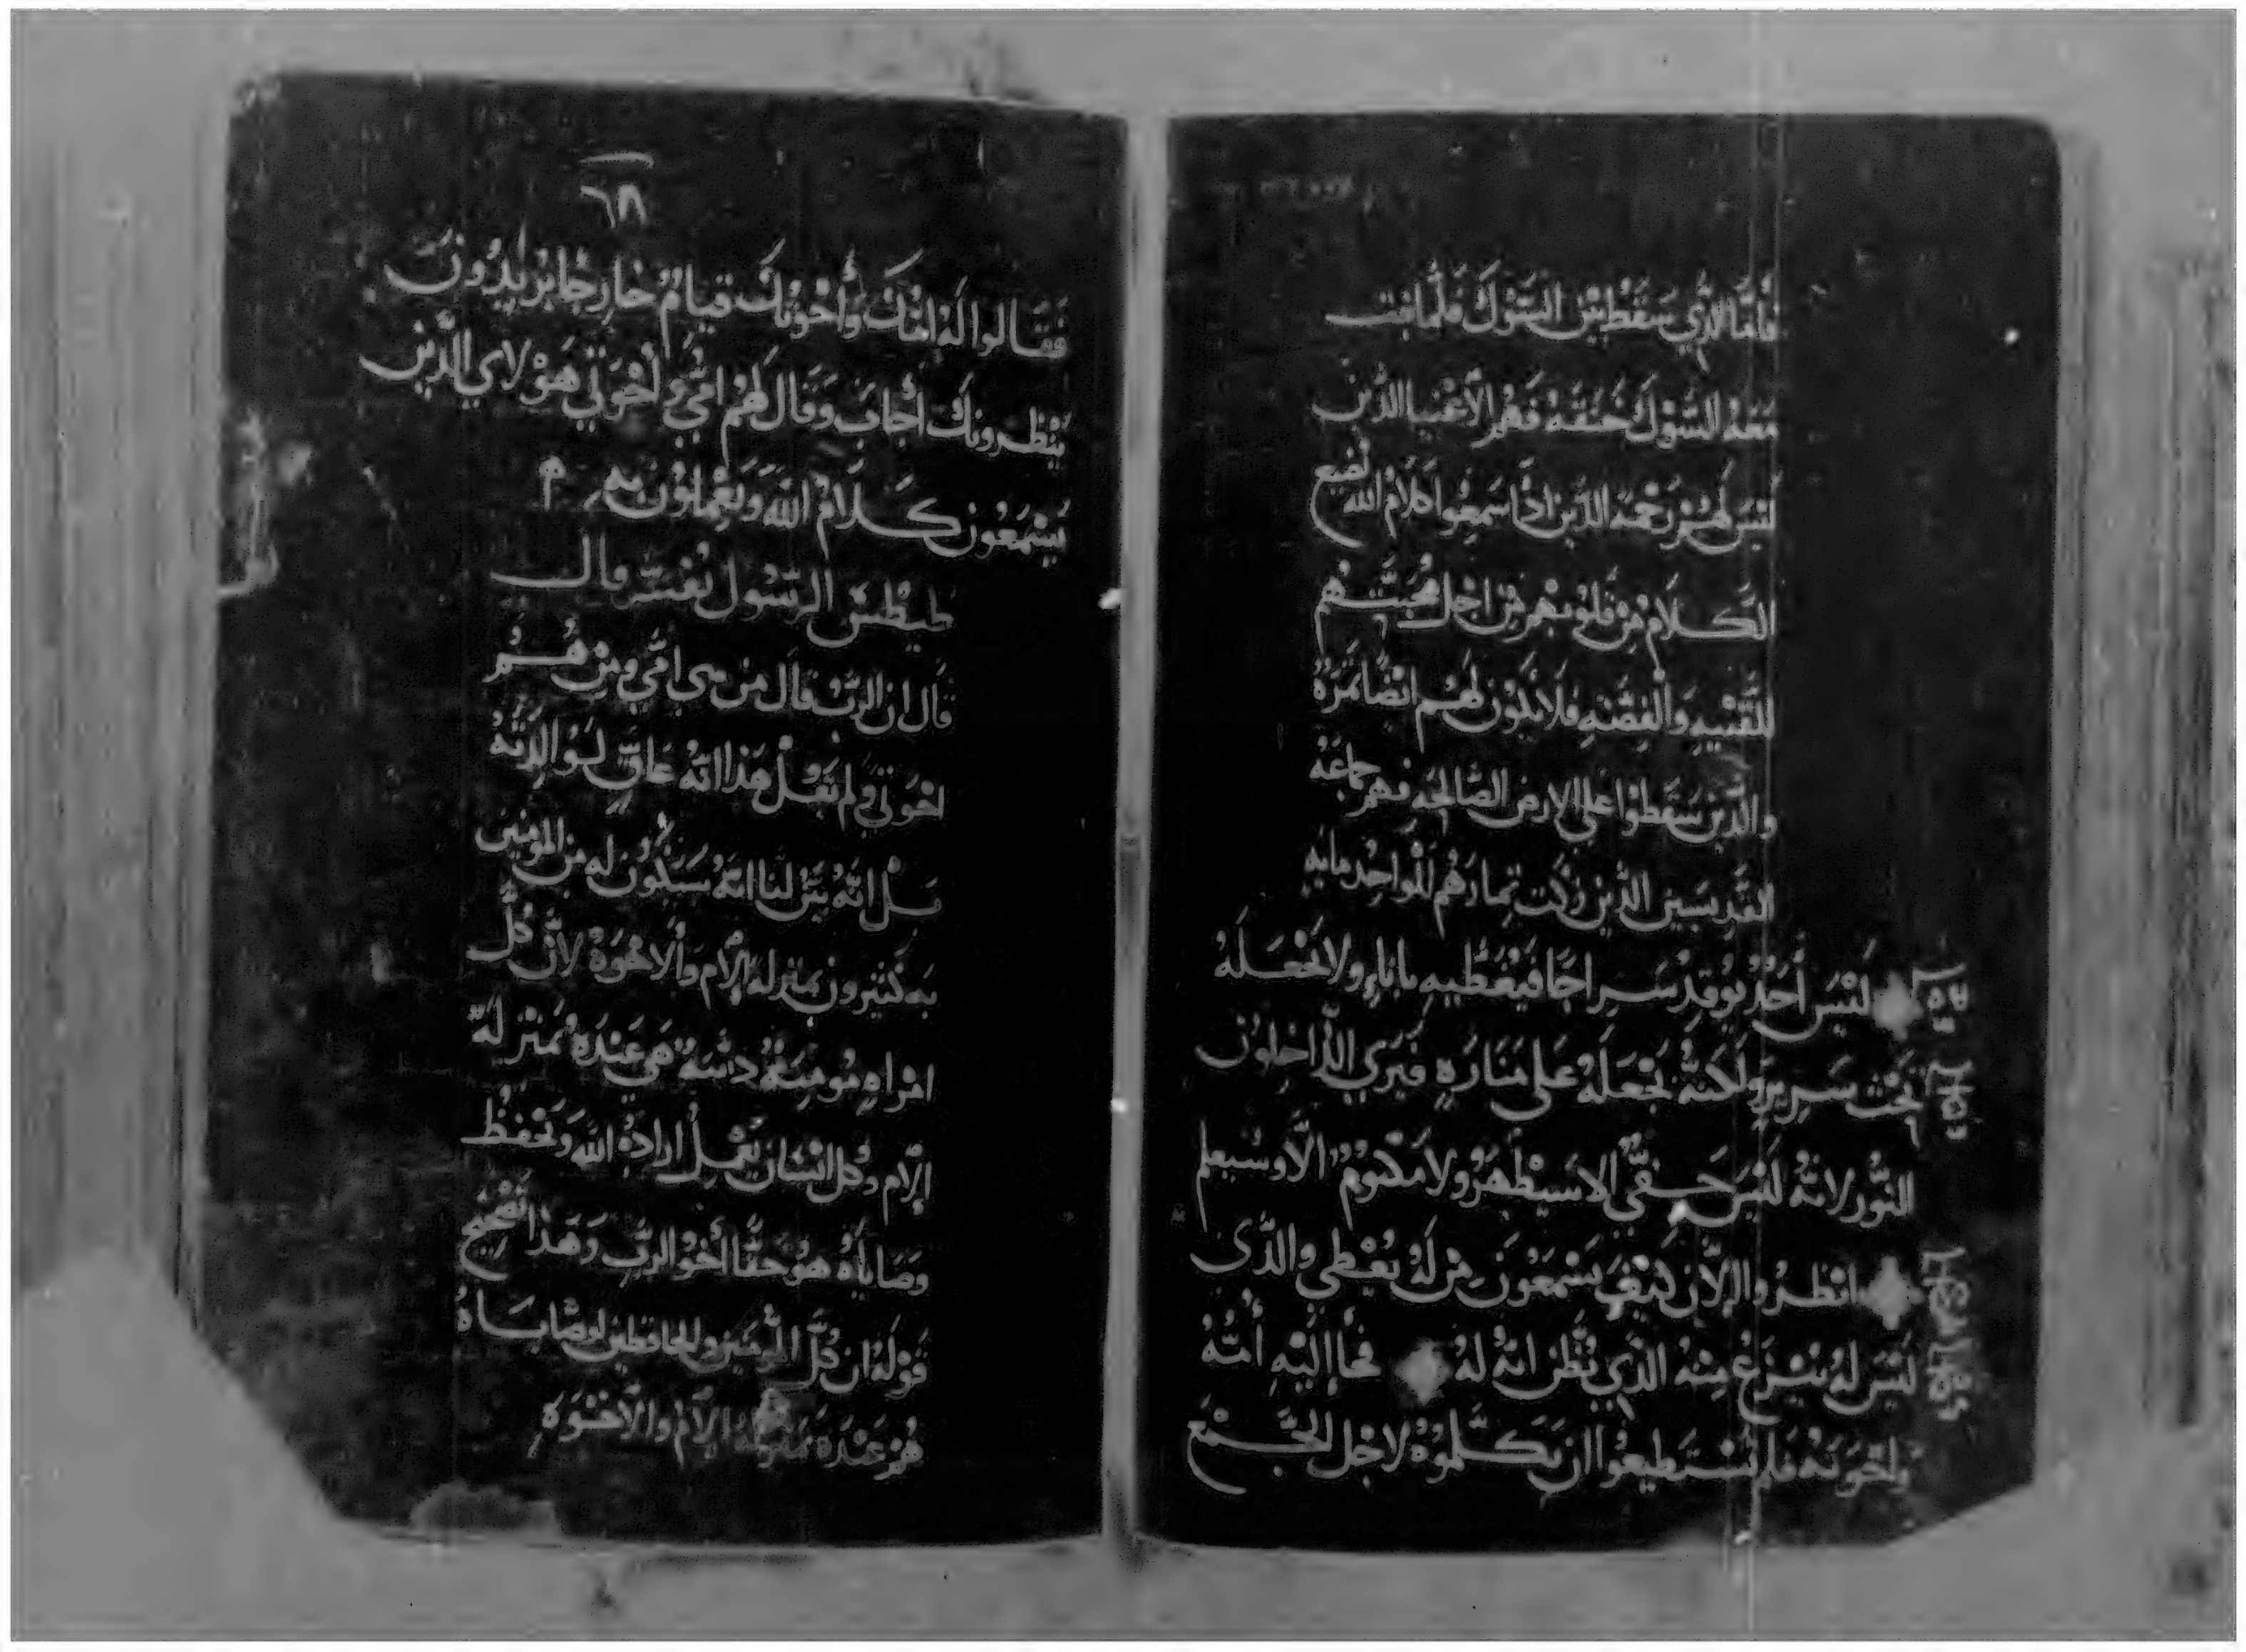 فَأمَّا الذِّي سَقَطْ بَيْن الشَوك فلما نبت
مَعَهُ الشَوْك خَنقَهُ فَهُم الأغنيا الذين
ليسَ لَهُم رَحْمَة الذين اذا سَمِعُوا كلام الله يضيع
الكَلام مِن قلوبهم مِن اجل محبَّتهم
للقنيه وَالفِضّه فلا يكون لهم ايضًا ثمرة
والذين سَقَطوا على الارض الصَّالحه فهم جماعة
القديسين الذين زكت ثمارهُم للواحد مايه
لَيْسَ أحَدٌ يُوقِدْ سَراجًا فيُغَطِّيهِ باناءٍ ولا يجْعَلَهُ
تحْتَ سَرِيرٍ ولَكنهُ يَجْعَلَهُ عَلى مَنَارَهٍ فيَرَي الدَّاخِلُونْ
النُّورِ لانهُ ليْسَ خَفيٌّ الا سَيظْهَرُ ولا مَكتومٌ الاَّ وسَيعلم
انظرُوا الاَن كيْفَ تسْمَعُونَ مِن لَهُ يُعْطى والذَّى
ليْسَ لهُ يُنْزَعْ مِنْهُ الذِي يَظَّن انهُ لهُ فجأ إليْهِ أُمّهُ
واخْوَتهُ فلم يَسْتَطيعُوا ان يُكَلّمُوهُ لاجْل الجَّمْع
٦٨
فَقَالوا لَهُ امّكَ وَأُخْوتكَ قيامٌ خارجًا يُرِيدُونَ
يَنْظرونك أجابَ وَقال لهُمْ امّي وأخوَتي هَوْلاي الذّين
يَسْمَعُون كَلامْ الله وَيَعْملُوْن بهِ
طيْطسْ الرسُول يُفسّر قال
قال ان الربّ قال من هي امّي ومِنْ هُم
اخْوَتي ولم يَقُلْ هَذا انهُ عَاقٍ لوَالدَتهُ
بلْ انهُ بَيّن لنا انهُ سَيَكُون له من المومنين
به كثيرون بمنزلة الاُم والاخوَةْ لأن كُلّ
امْراه مُومِنَةٌ هي عنده بمنزلة
الاُم وكل انسَان يَعْمِلْ ارادة الله وَيَحْفظْ
وصَاياهُ هُوَ حَقًّا أخُو الربّ وَهَذا تصحيح
قَوْلهُ ان كُلّ المومنين والحافظين لوصَايَاهُ
هُم عندَهُ بمنزلة الاُم والاخْوَهِ